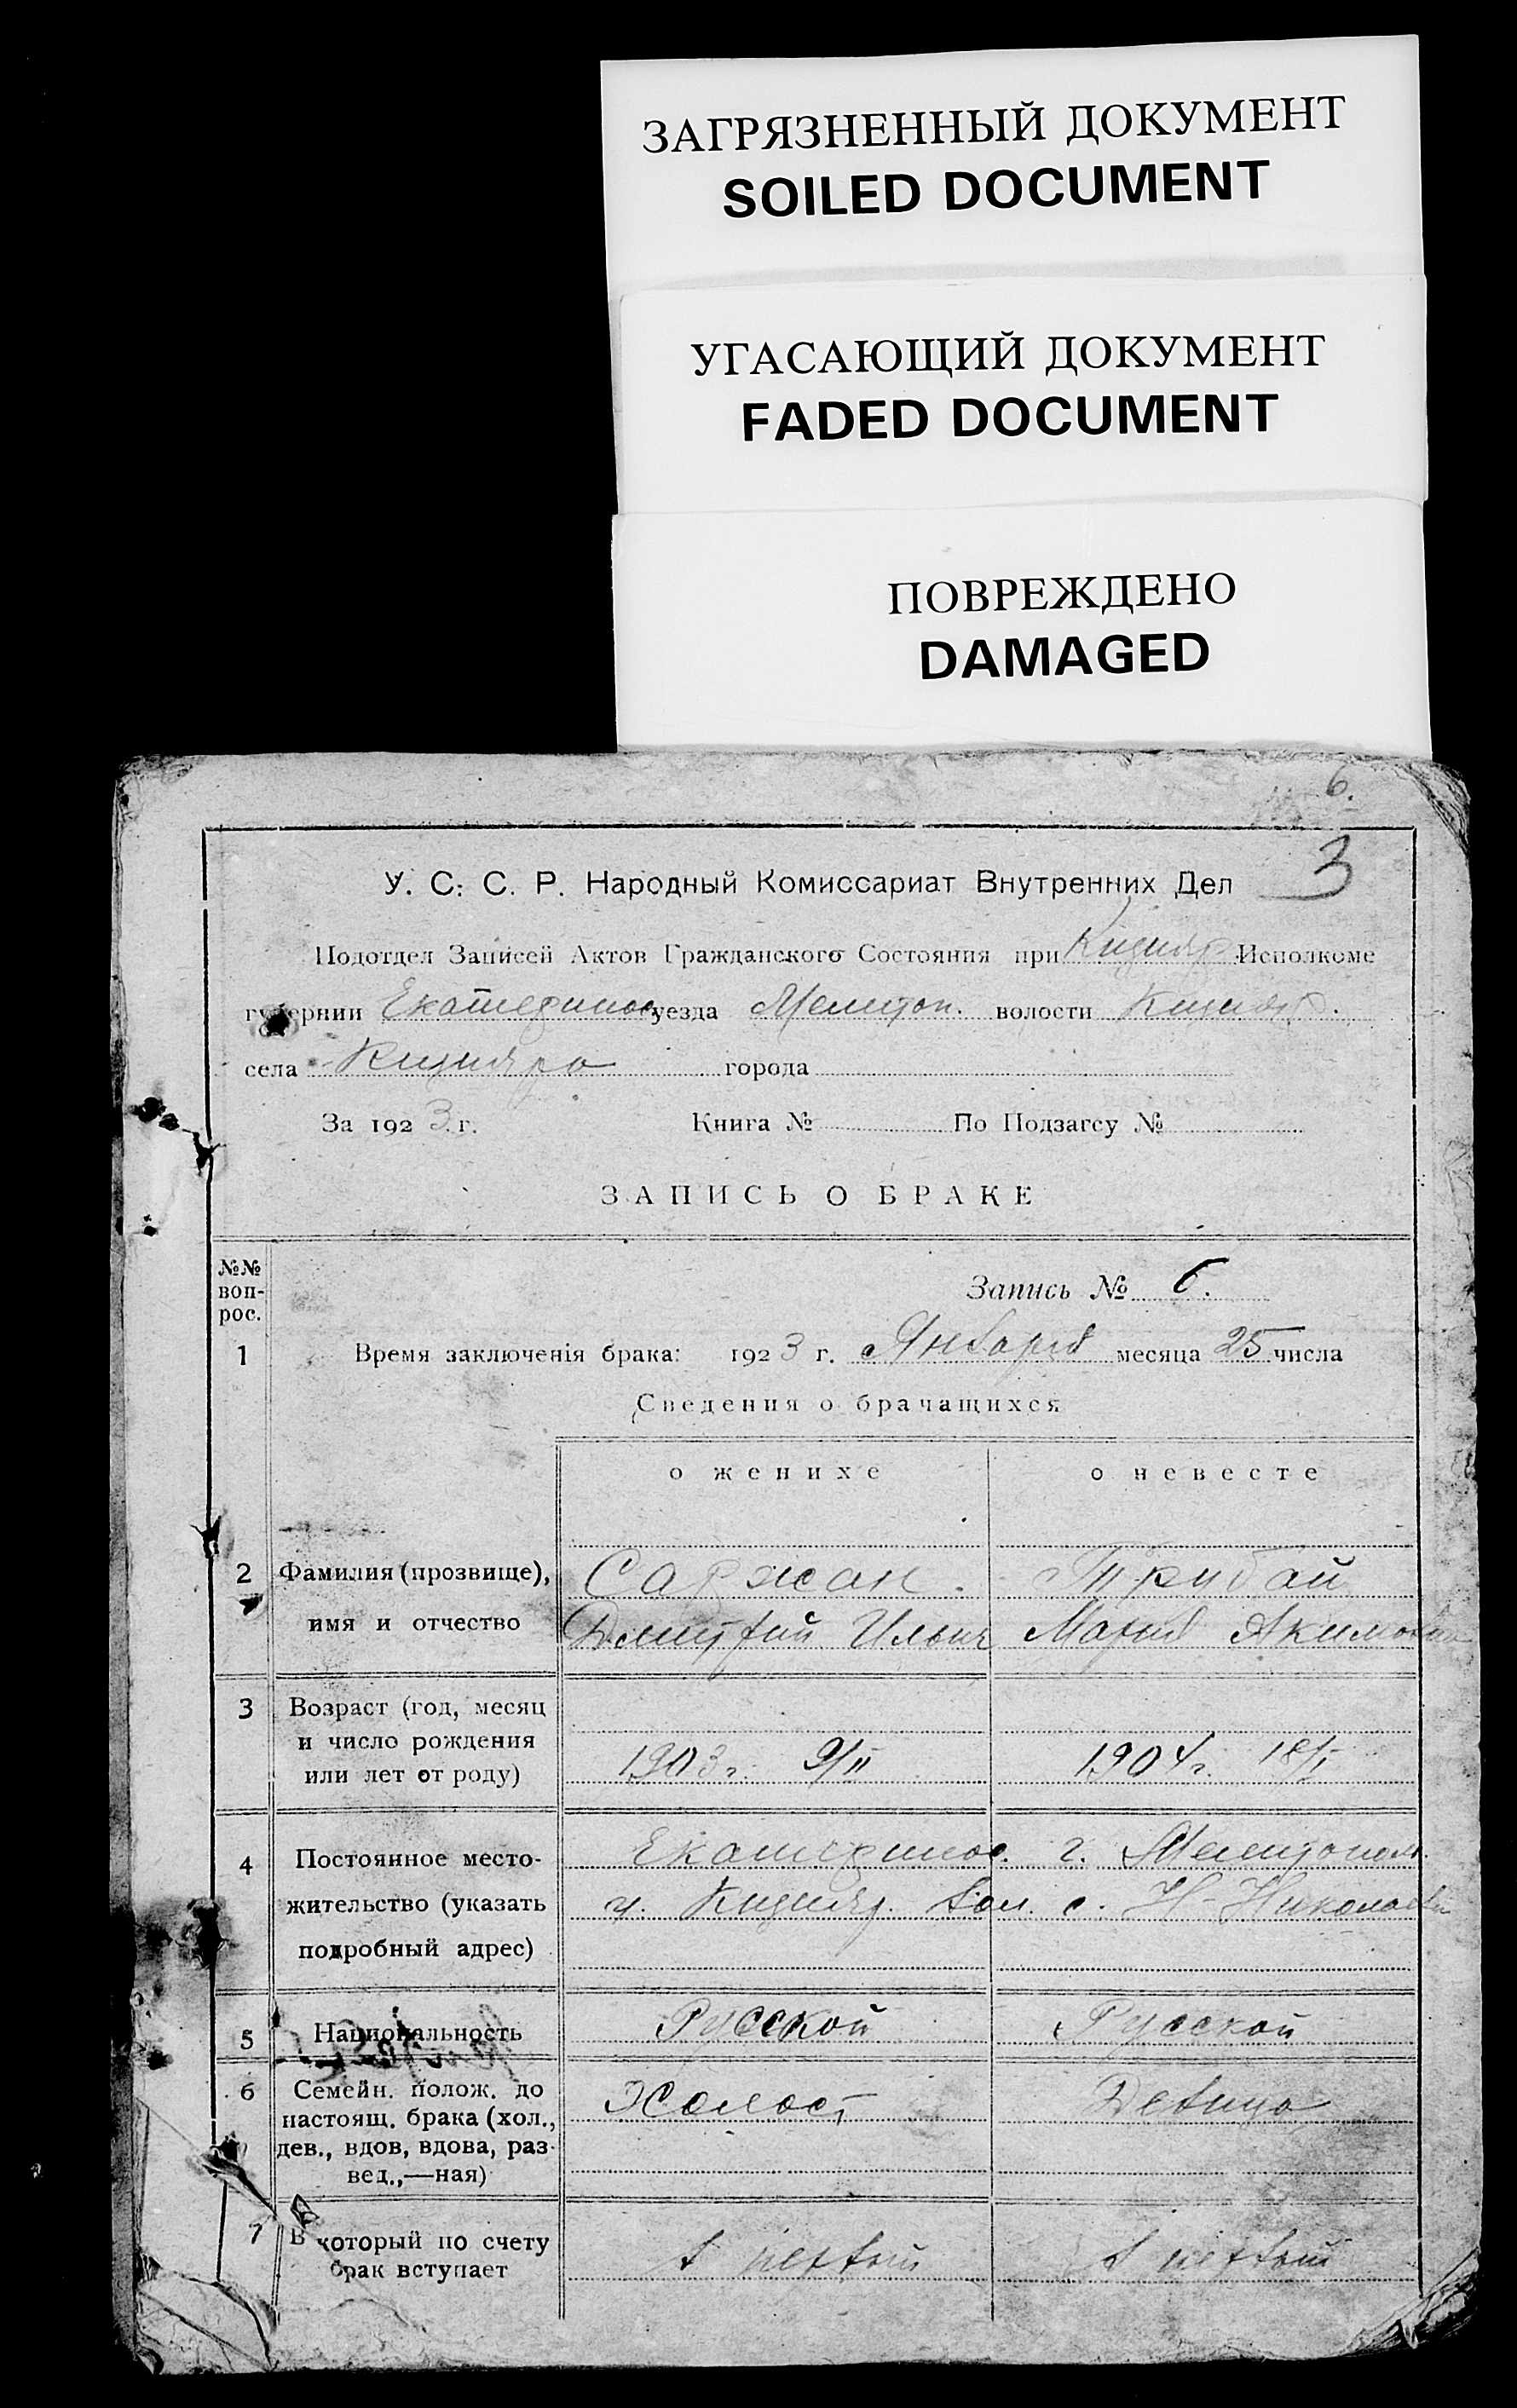 ЗАГРЯЗНЕННЫЙ ДОКУМЕНТ
SOILED DOCUMENT
УГАСАЮЩИЙ ДОКУМЕНТ
FADED DOCUMENT
ПОВРЕЖДЕНО
DAMAGED
6.
3
У. С. С. Р. Народный Комиссариат Внутренних Дел
Подотдел Записей Актов Гражданского Состояния при Кизияр. Исполкоме
губернии Екатеринос. уезда Мелитоп. волости Кизияр.
села Кизияра города
За 1923 г. Книга № По Подзагсу №
ЗАПИСЬ О БРАКЕ
№№ воп- рос.
Запись № 6.
1 Время заключенія брака: 1923 г. Января месяца 25 числа
Сведения о брачащихся
о женихе о невесте
2 Фамилия (прозвище), Саржан. Трубай
имя и отчество Дмитрий Ильич Мария Акимовна
3 Возраст (год, месяц
и число рождения
или лет от роду) 1903 г. 9/II 1904 г. 18/I
4 Постоянное место- Екатеринос. г. Мелитопол.
жительство (указать у. Кизияр. вол. с. Н-Николаевки
подробный адрес)
5 Национальность Русской Русской
6 Семейн. полож. до Холост Девица
настоящ. брака (хол.,
дев., вдов, вдова, раз-
вед.,—ная)
7 В который по счету в первый в первый
брак вступает